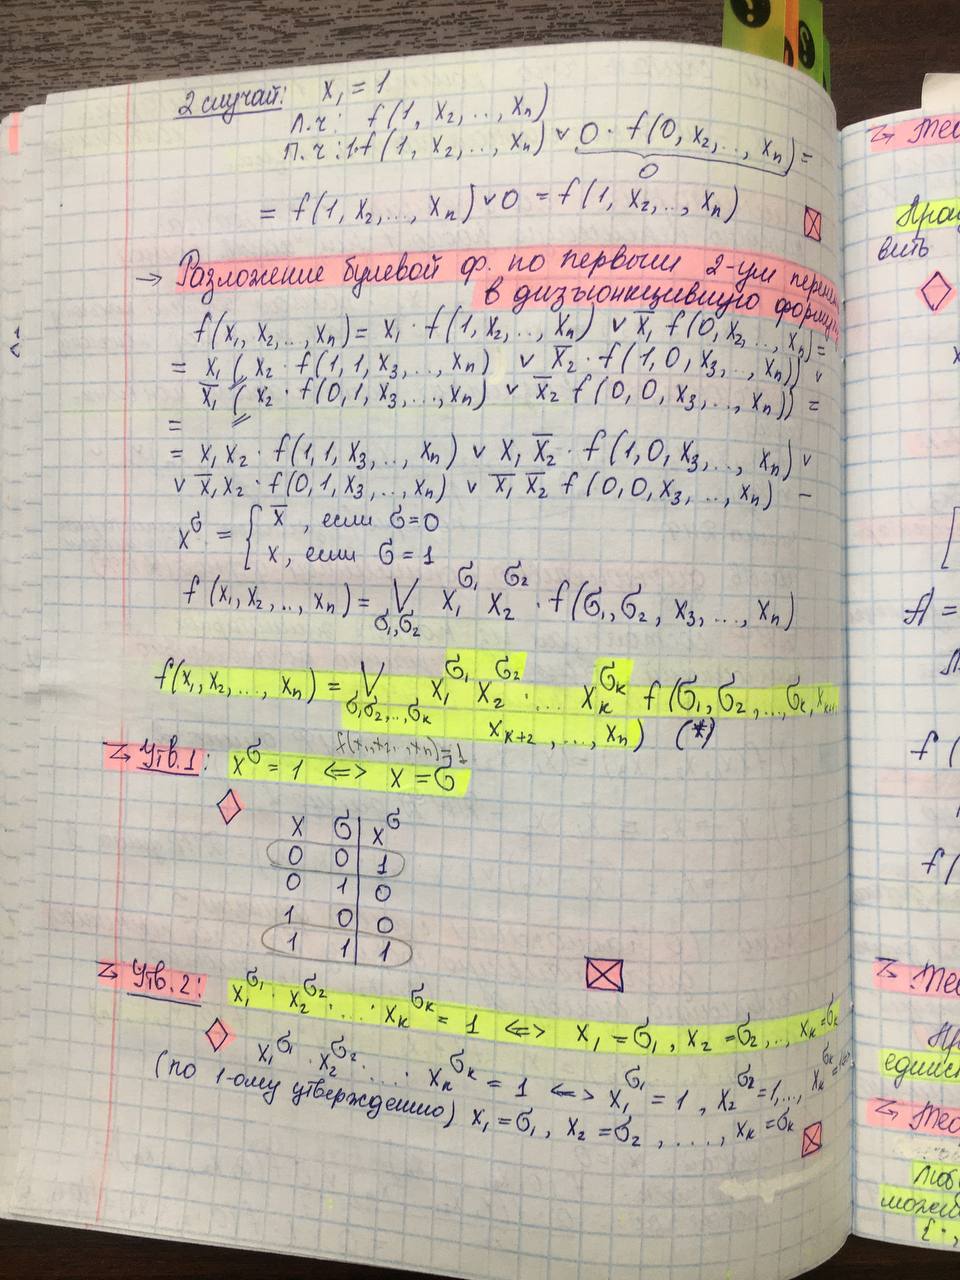 2 случай: x₁ = 1
л.ч: f(1, x₂, .., xₙ)
п.ч: 1·f(1, x₂, .., xₙ) ∨ 0 · f(0, x₂, .., xₙ) =
0
= f(1, x₂, ..., xₙ) ∨ 0 = f(1, x₂, .., xₙ)
→ Разложение булевой ф. по первым 2-ум
в дизъюнктивную форму
f(x₁, x₂, .., xₙ) = x₁ · f(1, x₂, .., xₙ) ∨ x̅₁ f(0, x₂, .., xₙ) =
= x₁ ( x₂ · f(1, 1, x₃, .., xₙ) ∨ x̅₂ · f(1, 0, x₃, .., xₙ)) ∨
x̅₁ ( x₂ · f(0, 1, x₃, .., xₙ) ∨ x̅₂ f(0, 0, x₃, .., xₙ)) =
=
= x₁ x₂ · f(1, 1, x₃, .., xₙ) ∨ x₁ x̅₂ · f(1, 0, x₃, .., xₙ) ∨
∨ x̅₁ x₂ · f(0, 1, x₃, .., xₙ) ∨ x̅₁ x̅₂ f(0, 0, x₃, .., xₙ) –
x^σ = { x̅, если σ = 0
x, если σ = 1
f(x₁, x₂, .., xₙ) = ⋁ x₁^σ₁ x₂^σ₂ · f(σ₁, σ₂, x₃, .., xₙ)
σ₁, σ₂
f(x₁, x₂, ..., xₙ) = ⋁ x₁^σ₁ x₂^σ₂ · ... x_k^σ_k f(σ₁, σ₂, ..., σ_k, x_k+1
σ₁, σ₂, .., σ_k x_k+2, ..., xₙ) (*)
f(x₁, x₂, .., xₙ) = 1
Утв. 1: x^σ = 1 <=> x = σ
x σ x^σ
0 0 1
0 1 0
1 0 0
1 1 1
Утв. 2: x₁^σ₁ · x₂^σ₂ · ... · x_k^σ_k = 1 <=> x₁ = σ₁, x₂ = σ₂, .., x_k = σ_k
x₁^σ₁ · x₂^σ₂ · ... · x_k^σ_k = 1 <=> x₁^σ₁ = 1, x₂^σ₂ = 1, ..., x_k^σ_k = 1 <=>
(по 1-ому утверждению) x₁ = σ₁, x₂ = σ₂, ..., x_k = σ_k
вить
f(
f(